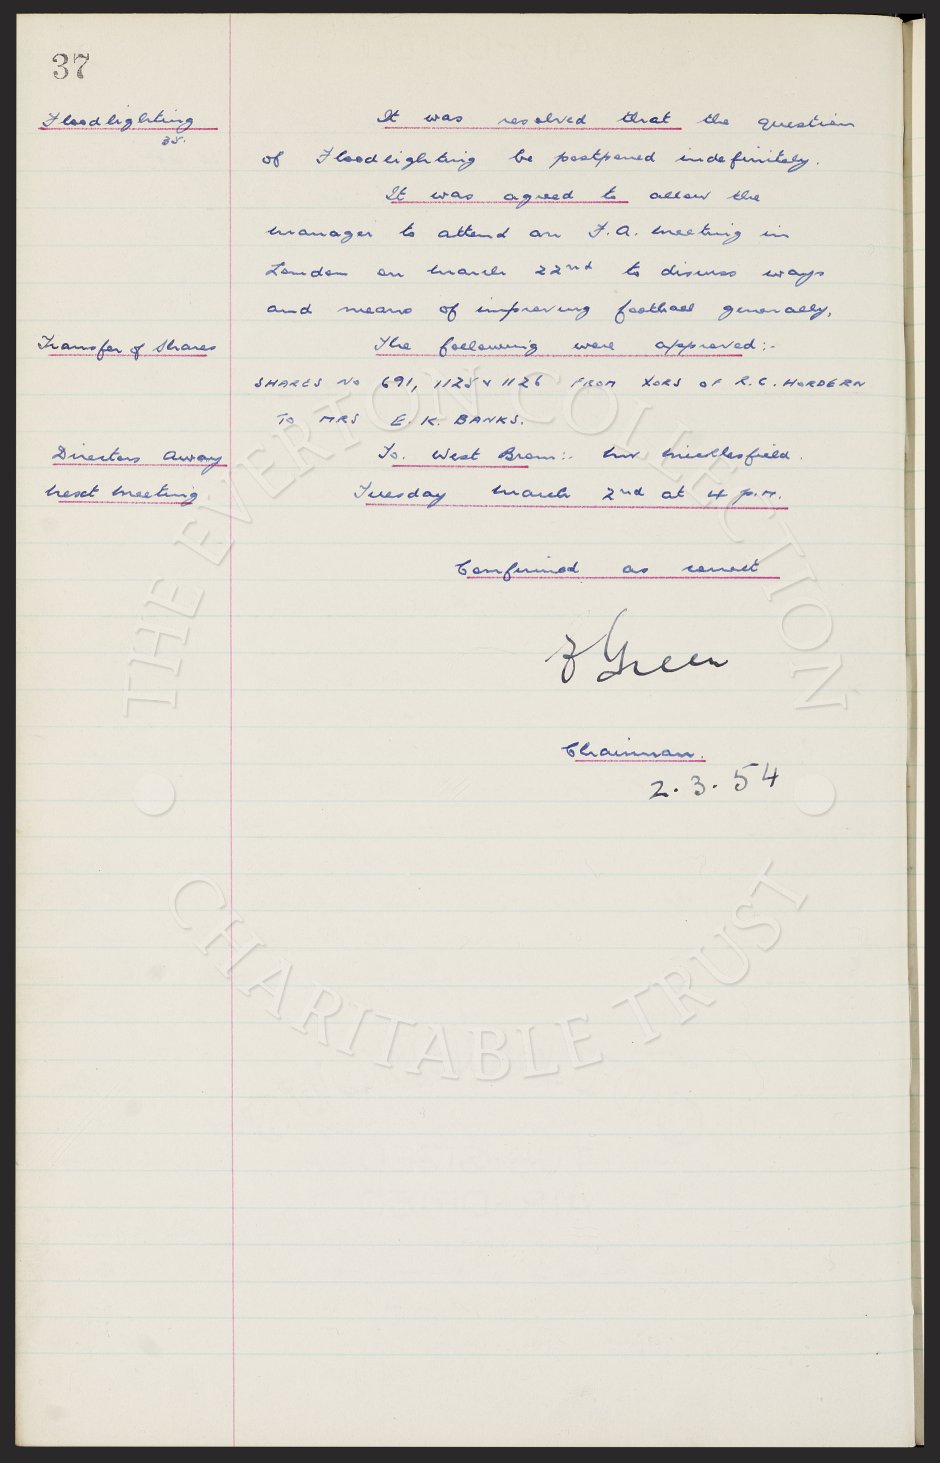 37
Floodlighting It was resolved that the question
35.
of Floodlighting be postponed indefinitely.
It was agreed to allow the
manager to attend an F.A. meeting in
London on March 22nd to discuss ways
and means of improving football generally.
Transfer of Shares The following were approved:-
SHARES NO 691, 1125 & 1126 FROM XORS OF R.C. HORDERN
TO MRS E. K. BANKS.
Directors Away To. West Brom:- Mr Micklesfield.
Next Meeting Tuesday March 2nd at 4 p.m.
Confirmed as correct
Green
Chairman.
2.3.54
THE EVERTON COLLECTION
CHARITABLE TRUST